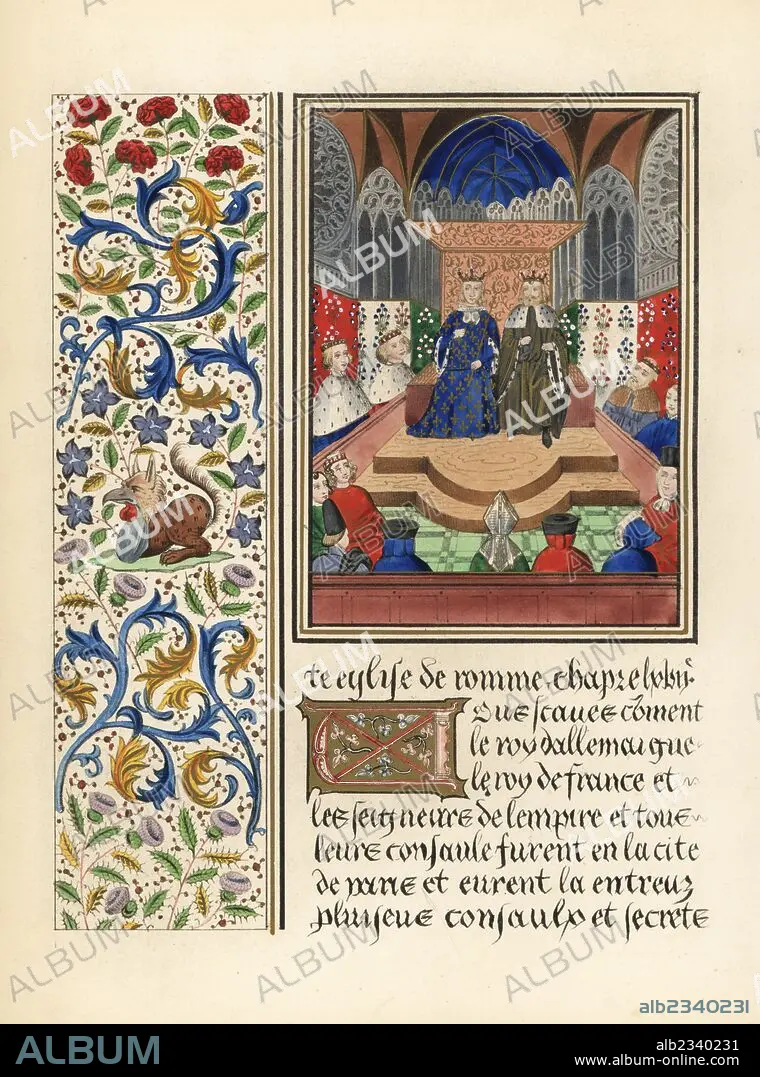 te eglise de romme. chapre lxbiȷ.
Ous scaues cōment
le roy dallemaigne
le roy de france et
les seigneurs de lempire et tous
leurs consaulx furent en la cite
de paris et eurent la entreulz
plusieurs consaulx et secrets
ALBUM
alb2340231
ALBUM
alb2340231
www.album-online.com